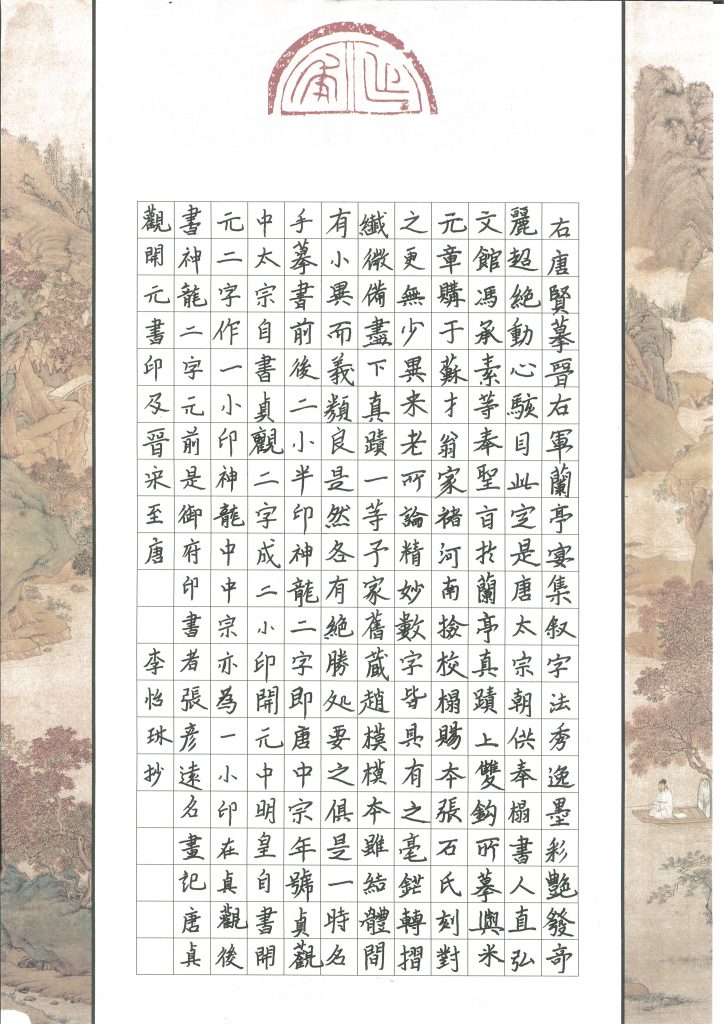 右唐賢摹晉右軍蘭亭宴集叙字法秀逸墨彩艷發奇
麗超絶動心駭目此定是唐太宗朝供奉榻書人直弘
文館馮承素等奉聖旨於蘭亭真蹟上雙鈎所摹與米
元章購于蘇才翁家褚河南撿校榻賜本張石氏刻對
之更無少異来老所論精妙數字皆具有之毫鋩轉摺
纖微備盡下真蹟一等予家舊蔵趙模模本雖結體間
有小異而義頼良是然各有絶勝処要之俱是一時名
手摹書前後二小半印神龍二字即唐中宗年號貞觀
中太宗自書貞觀二字成二小印開元中明皇自書開
元二字作一小印神龍中中宗亦為一小印在貞觀後
書神龍二字元前是御府印書者張彥遠名畫記唐貞
觀開元書印及晉宋至唐 李怡琳抄